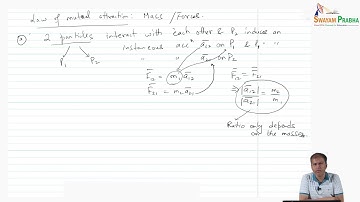 Law of mutual attraction: Mass / Forces.
SWAYAM PRABHA
2 particles interact with each other & P₂ induces an
instantaneous accⁿ a̅₁₂ on P₁ & P₁ " "
P₁ P₂ " " a̅₂₁ on P₂
F̅₁₂ = m₁ a̅₁₂ F̅₁₂ = F̅₂₁
F̅₂₁ = m₂ a̅₂₁ ⇒ |a̅₁₂| / |a̅₂₁| = m₂ / m₁
Ratio only depends
on the masses